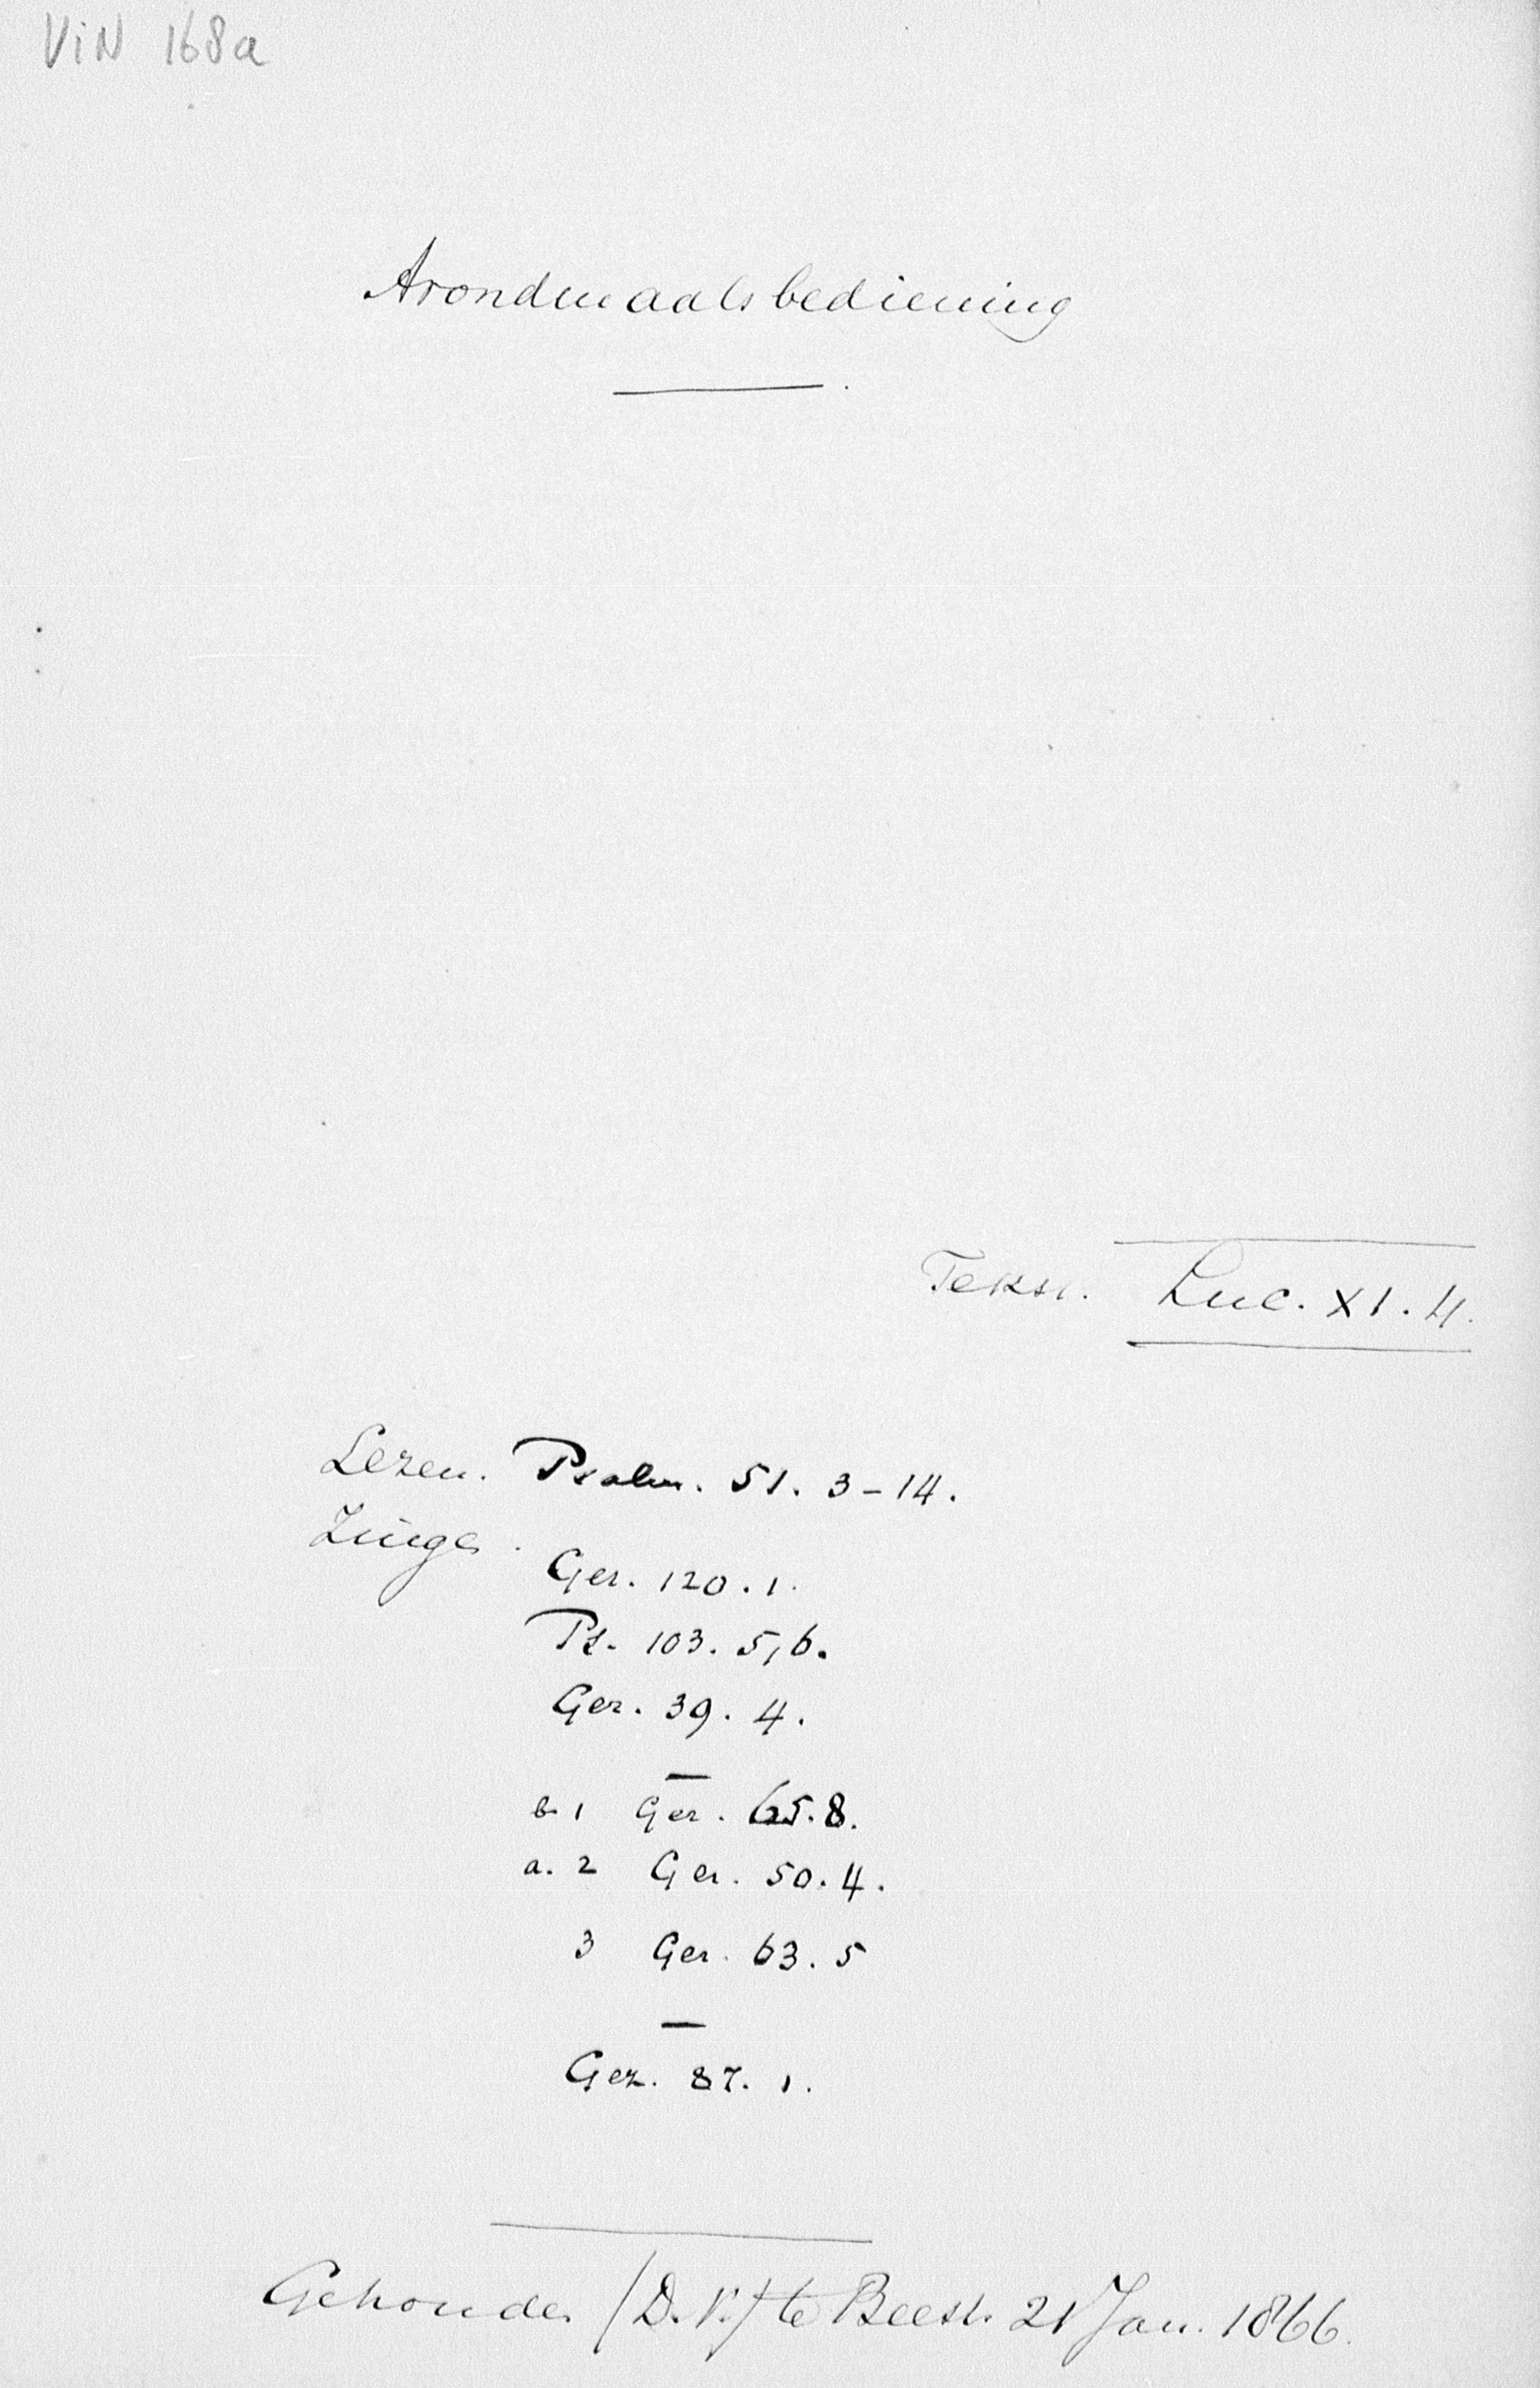 ViN 168a
Avondmaalsbediening
Tekst. Luc. XI. 4.
Lezen. Psalm. 51. 3-14.
Zingen.
Gez. 120. 1.
Ps. 103. 5, 6.
Gez. 39. 4.
b. 1 Gez. 65. 8.
a. 2 Gez. 50. 4.
3 Gez. 63. 5
Gez. 87. 1.
Gehouden (D.V.) te Beesd. 21 Jan. 1866.